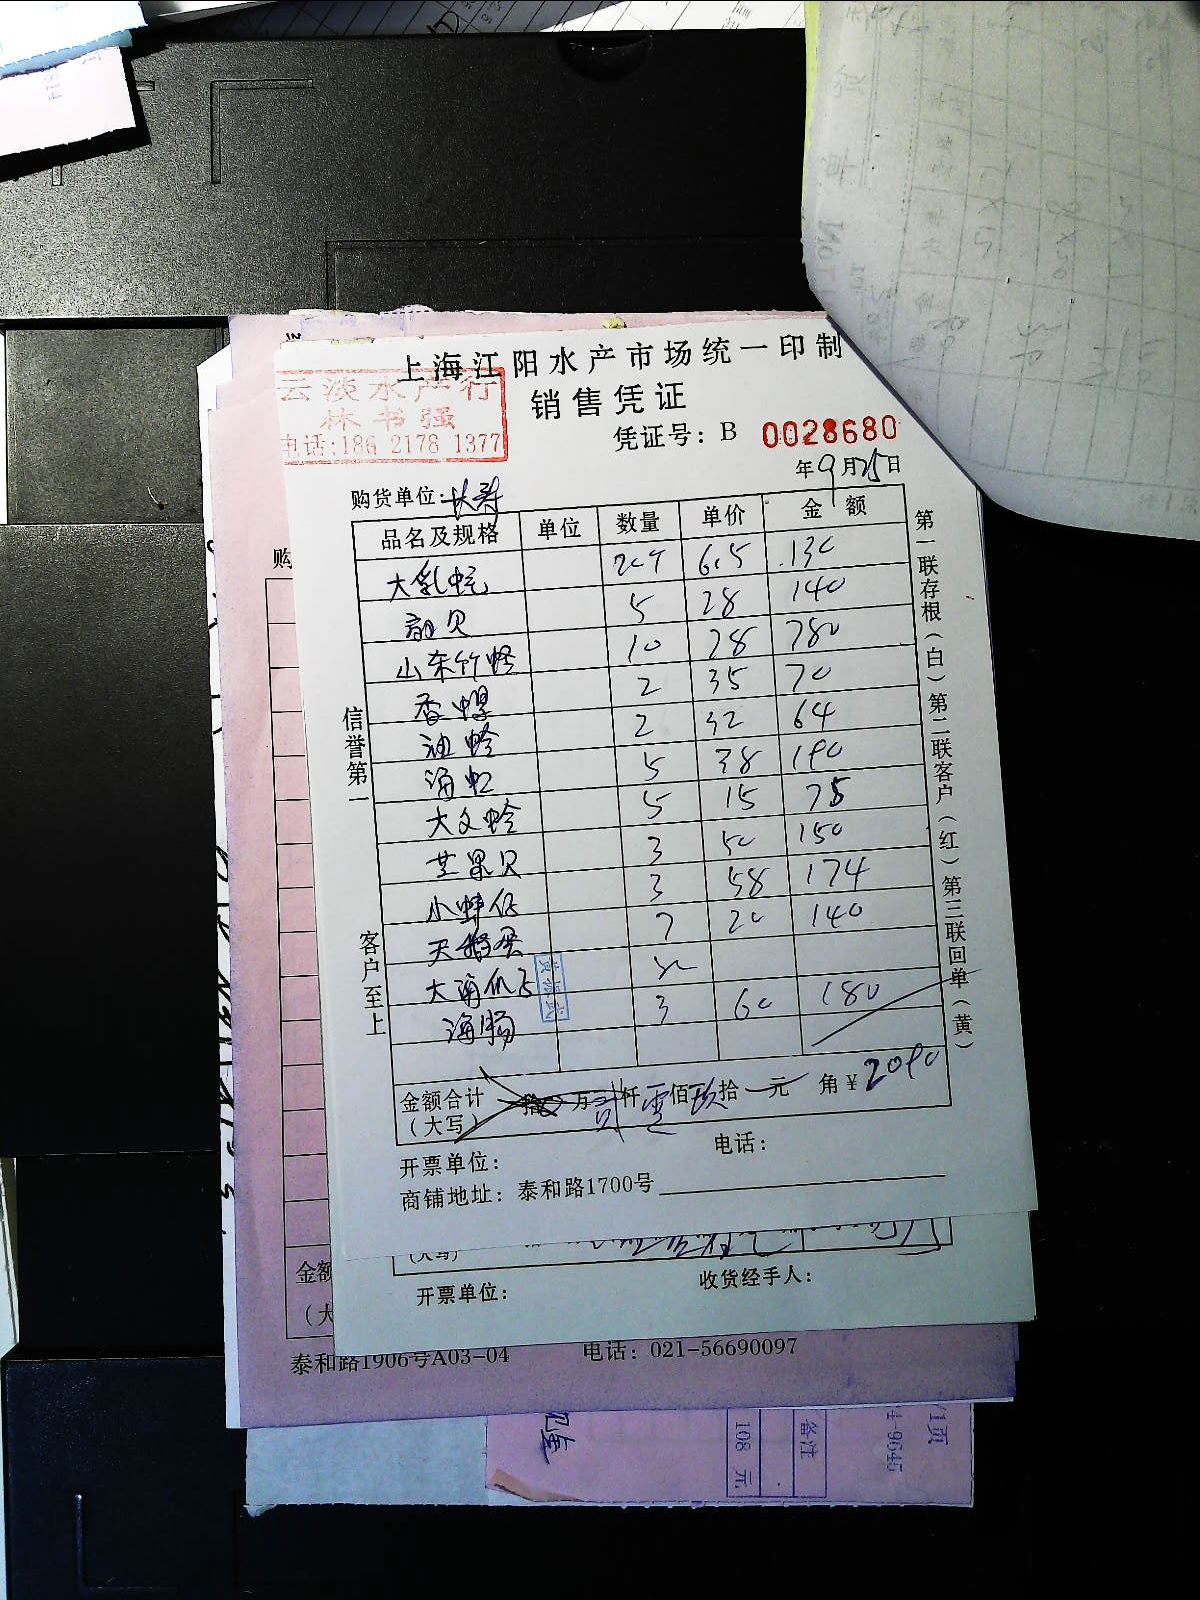 上海江阳水产市场统一印制
云淡水产行
林书强
电话:186 2178 1377
销售凭证
凭证号: B 0028680
年9月25日
购货单位:长寿
品名及规格 单位 数量 单价 金额
大乳蚝 20个 6.5 130
贝 5 28 140
山东竹蛏 10 78 780
香螺 2 35 70
油蛤 2 32 64
海虹 5 38 190
大文蛤 5 15 75
芒果贝 3 50 150
小蚌仔 3 58 174
天鹅蛋 7 20 140
大海瓜子
海肠 3 60 180
金额合计
(大写)
拾 万 贰仟零佰玖拾 元 角¥2090
开票单位: 电话:
商铺地址: 泰和路1700号
信誉第一
客户至上
第一联存根(白)第二联客户(红)第三联回单(黄)
(大写)
开票单位: 收货经手人:
购
金额
(大
泰和路1906号A03-04 电话: 021-56690097
备注
108 元
/1页
4-9645